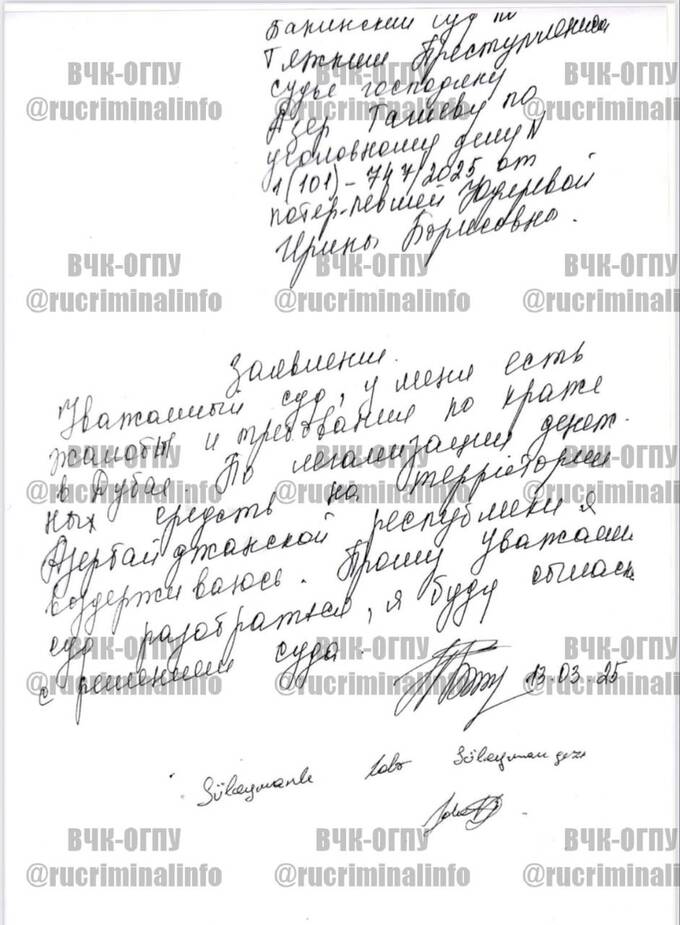 Бакинский суд по
Тяжким Преступлениям
судье господину
Азер Тагиеву по
уголовному делу N
1(101)-747/2025 от
потер-певшей
Ирины Борисовны.
Заявление.
Уважаемый суд, у меня есть
жалобы и требования по краже
в Дубае. По легализации денеж-
ных средств на территории
Азербайджанской республики я
воздерживаюсь. Прошу уважаем
суд разобраться, я буду согласн
с решением суда.
13.03.25
Süleymanlı Süleyman qızı
ВЧК-ОГПУ ВЧК-ОГПУ ВЧК-ОГПУ
@rucriminalinfo @rucriminalinfo @rucriminalinfo
ВЧК-ОГПУ ВЧК-ОГПУ ВЧК-ОГПУ
@rucriminalinfo @rucriminalinfo @rucriminalinfo
ВЧК-ОГПУ ВЧК-ОГПУ ВЧК-ОГПУ
@rucriminalinfo @rucriminalinfo @rucriminalinfo
ВЧК-ОГПУ ВЧК-ОГПУ ВЧК-ОГПУ
@rucriminalinfo @rucriminalinfo @rucriminalinfo
ВЧК-ОГПУ ВЧК-ОГПУ ВЧК-ОГПУ
@rucriminalinfo @rucriminalinfo @rucriminalinfo